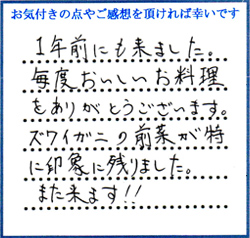 お気付きの点やご感想を頂ければ幸いです
1年前にも来ました。
毎度おいしいお料理
をありがとうございます。
ズワイガニの前菜が特
に印象に残りました。
また来ます!!